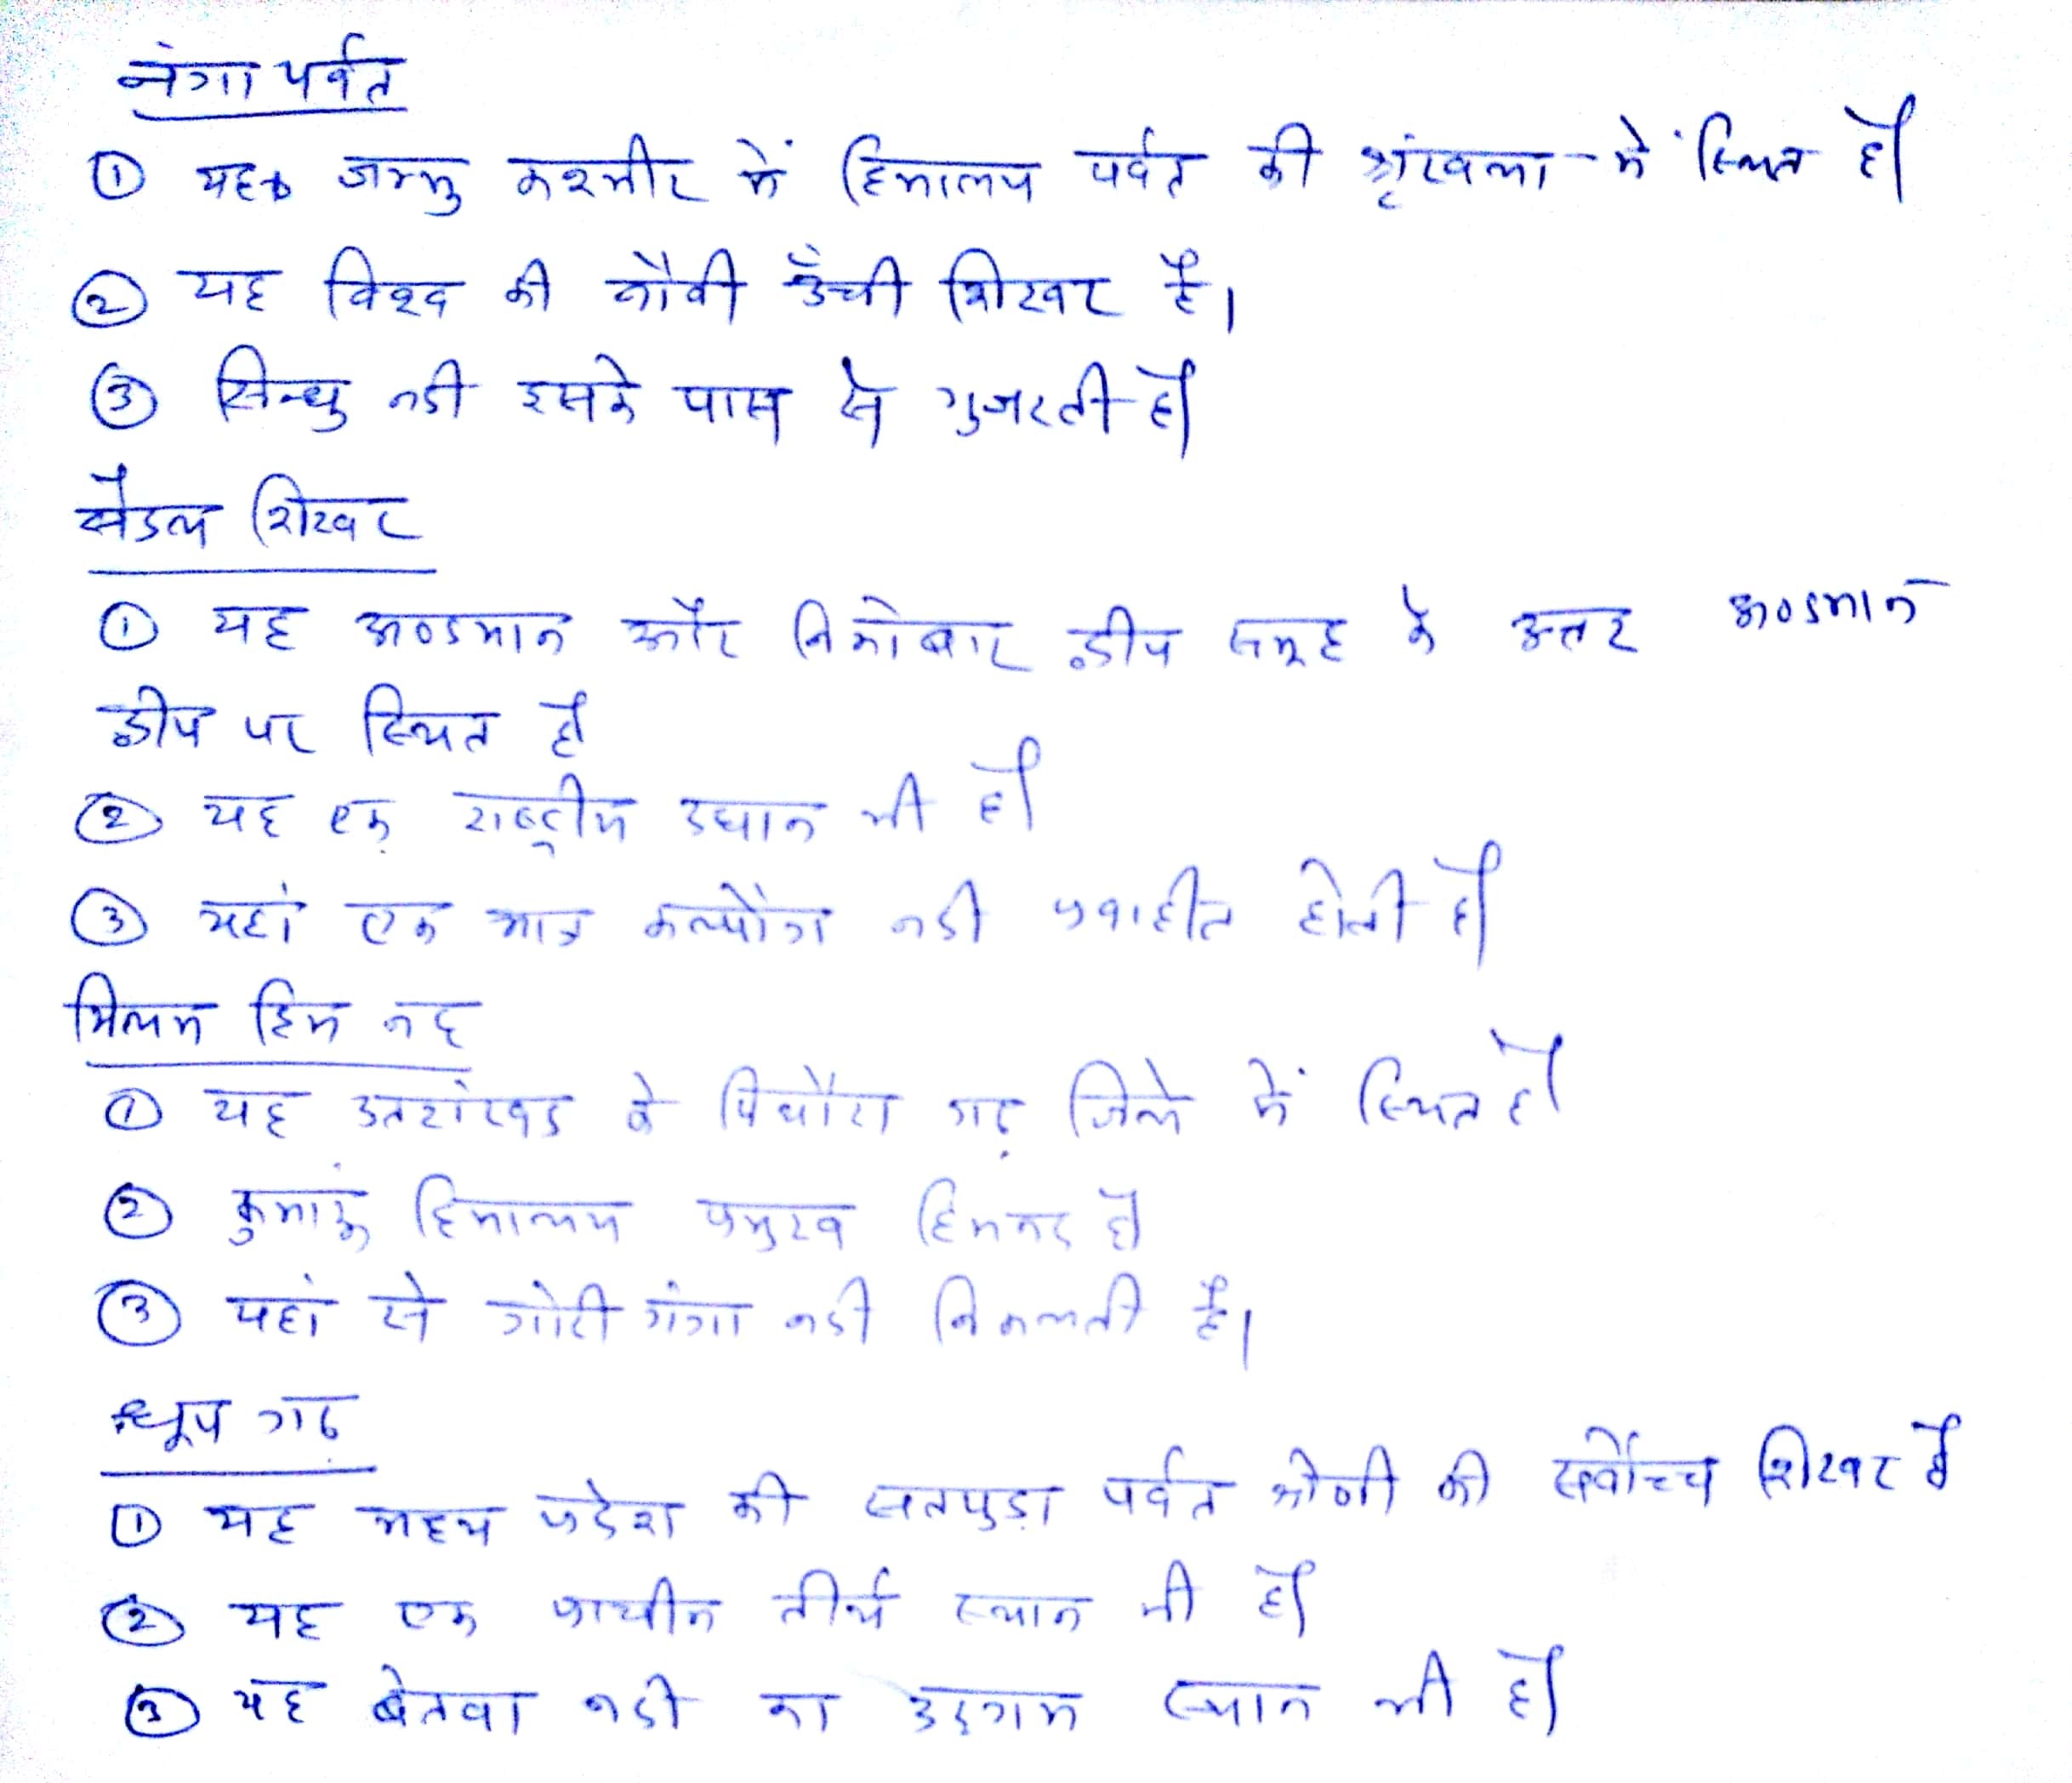 नंगा पर्वत
① यह जम्मु कश्मीर में हिमालय पर्वत की श्रृंखला में स्थित है।
② यह विश्व की नौवी ऊँची शिखर है।
③ सिन्धु नदी इसके पास से गुजरती है।
सैडल शिखर
① यह अण्डमान और निकोबार द्वीप समूह के उत्तर अण्डमान
द्वीप पर स्थित है।
② यह एक राष्ट्रीय उद्यान भी है।
③ यहां एक मात्र कल्पोंग नदी प्रवाहीत होती है।
मिलम हिम नद
① यह उत्तरांखड के पिथौरा गढ़ जिले में स्थित है।
② कुमाऊं हिमालय प्रमुख हिमनद है।
③ यहां से गोरी गंगा नदी निकलती है।
धूप गढ़
① यह मध्य प्रदेश की सतपुड़ा पर्वत श्रेणी की सर्वोच्च शिखर है
② यह एक प्राचीन तीर्थ स्थान भी है।
③ यह बेतवा नदी का उदगम स्थान भी है।